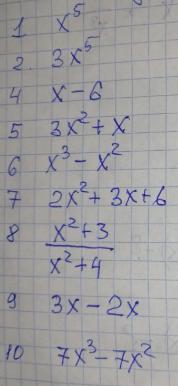 1 x⁵
2. 3x⁵
4 x-6
5 3x²+x
6 x³-x²
7 2x²+3x+6
8 x²+3
x²+4
9 3x-2x
10 7x³-7x²